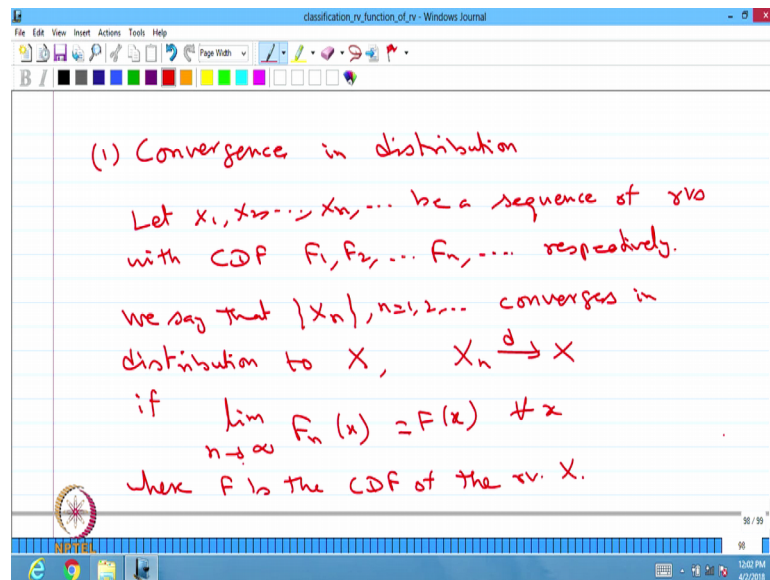 classification_rv_function_of_rv - Windows Journal
File Edit View Insert Actions Tools Help
Page Width
B I
(1) Convergence in distribution
Let X1, X2, ..., Xn, ... be a sequence of rvs
with CDF F1, F2, ... Fn, .... respectively.
We say that {Xn}, n=1,2,... converges in
distribution to X, Xn d→ X
if lim n→∞ Fn (x) = F(x) ∀ x
where F is the CDF of the rv. X.
98 / 99
NPTEL
98
12:02 PM
4/2/2018